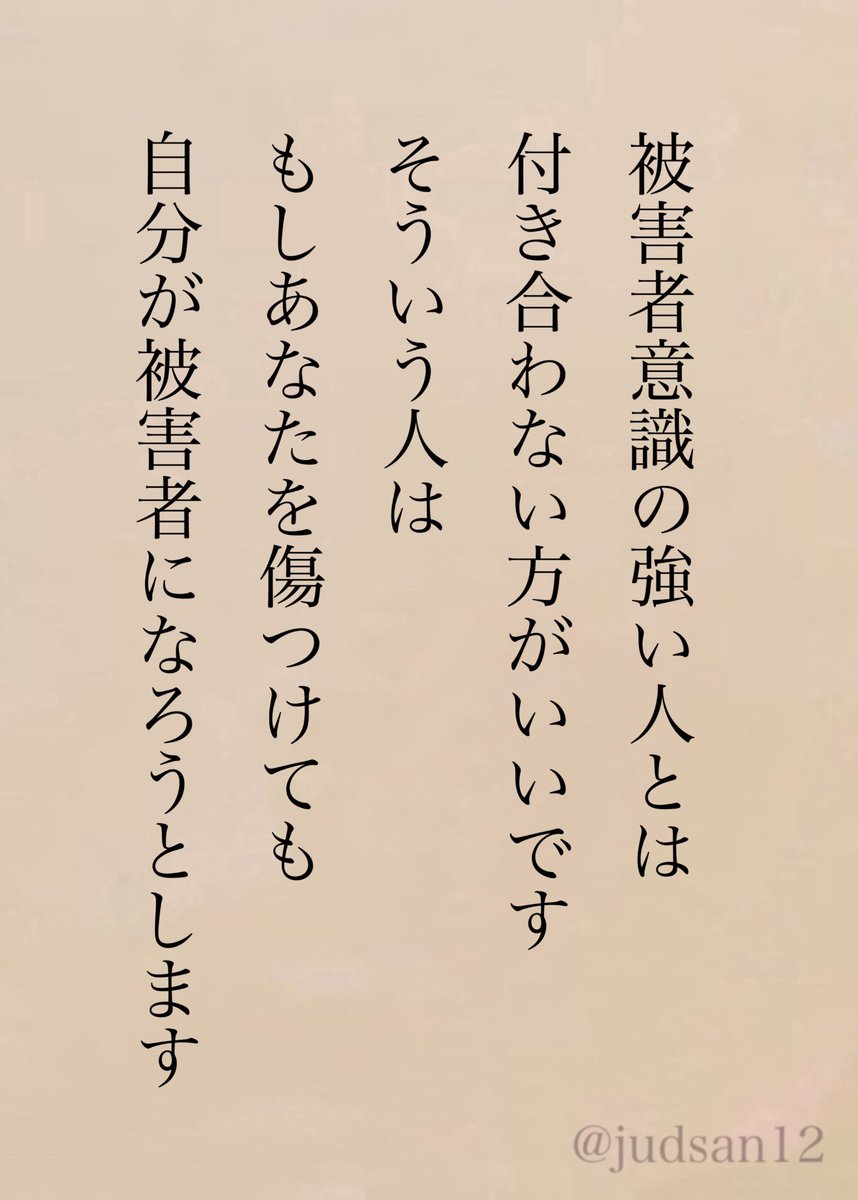 被害者意識の強い人とは
付き合わない方がいいです
そういう人は
もしあなたを傷つけても
自分が被害者になろうとします
@judsan12